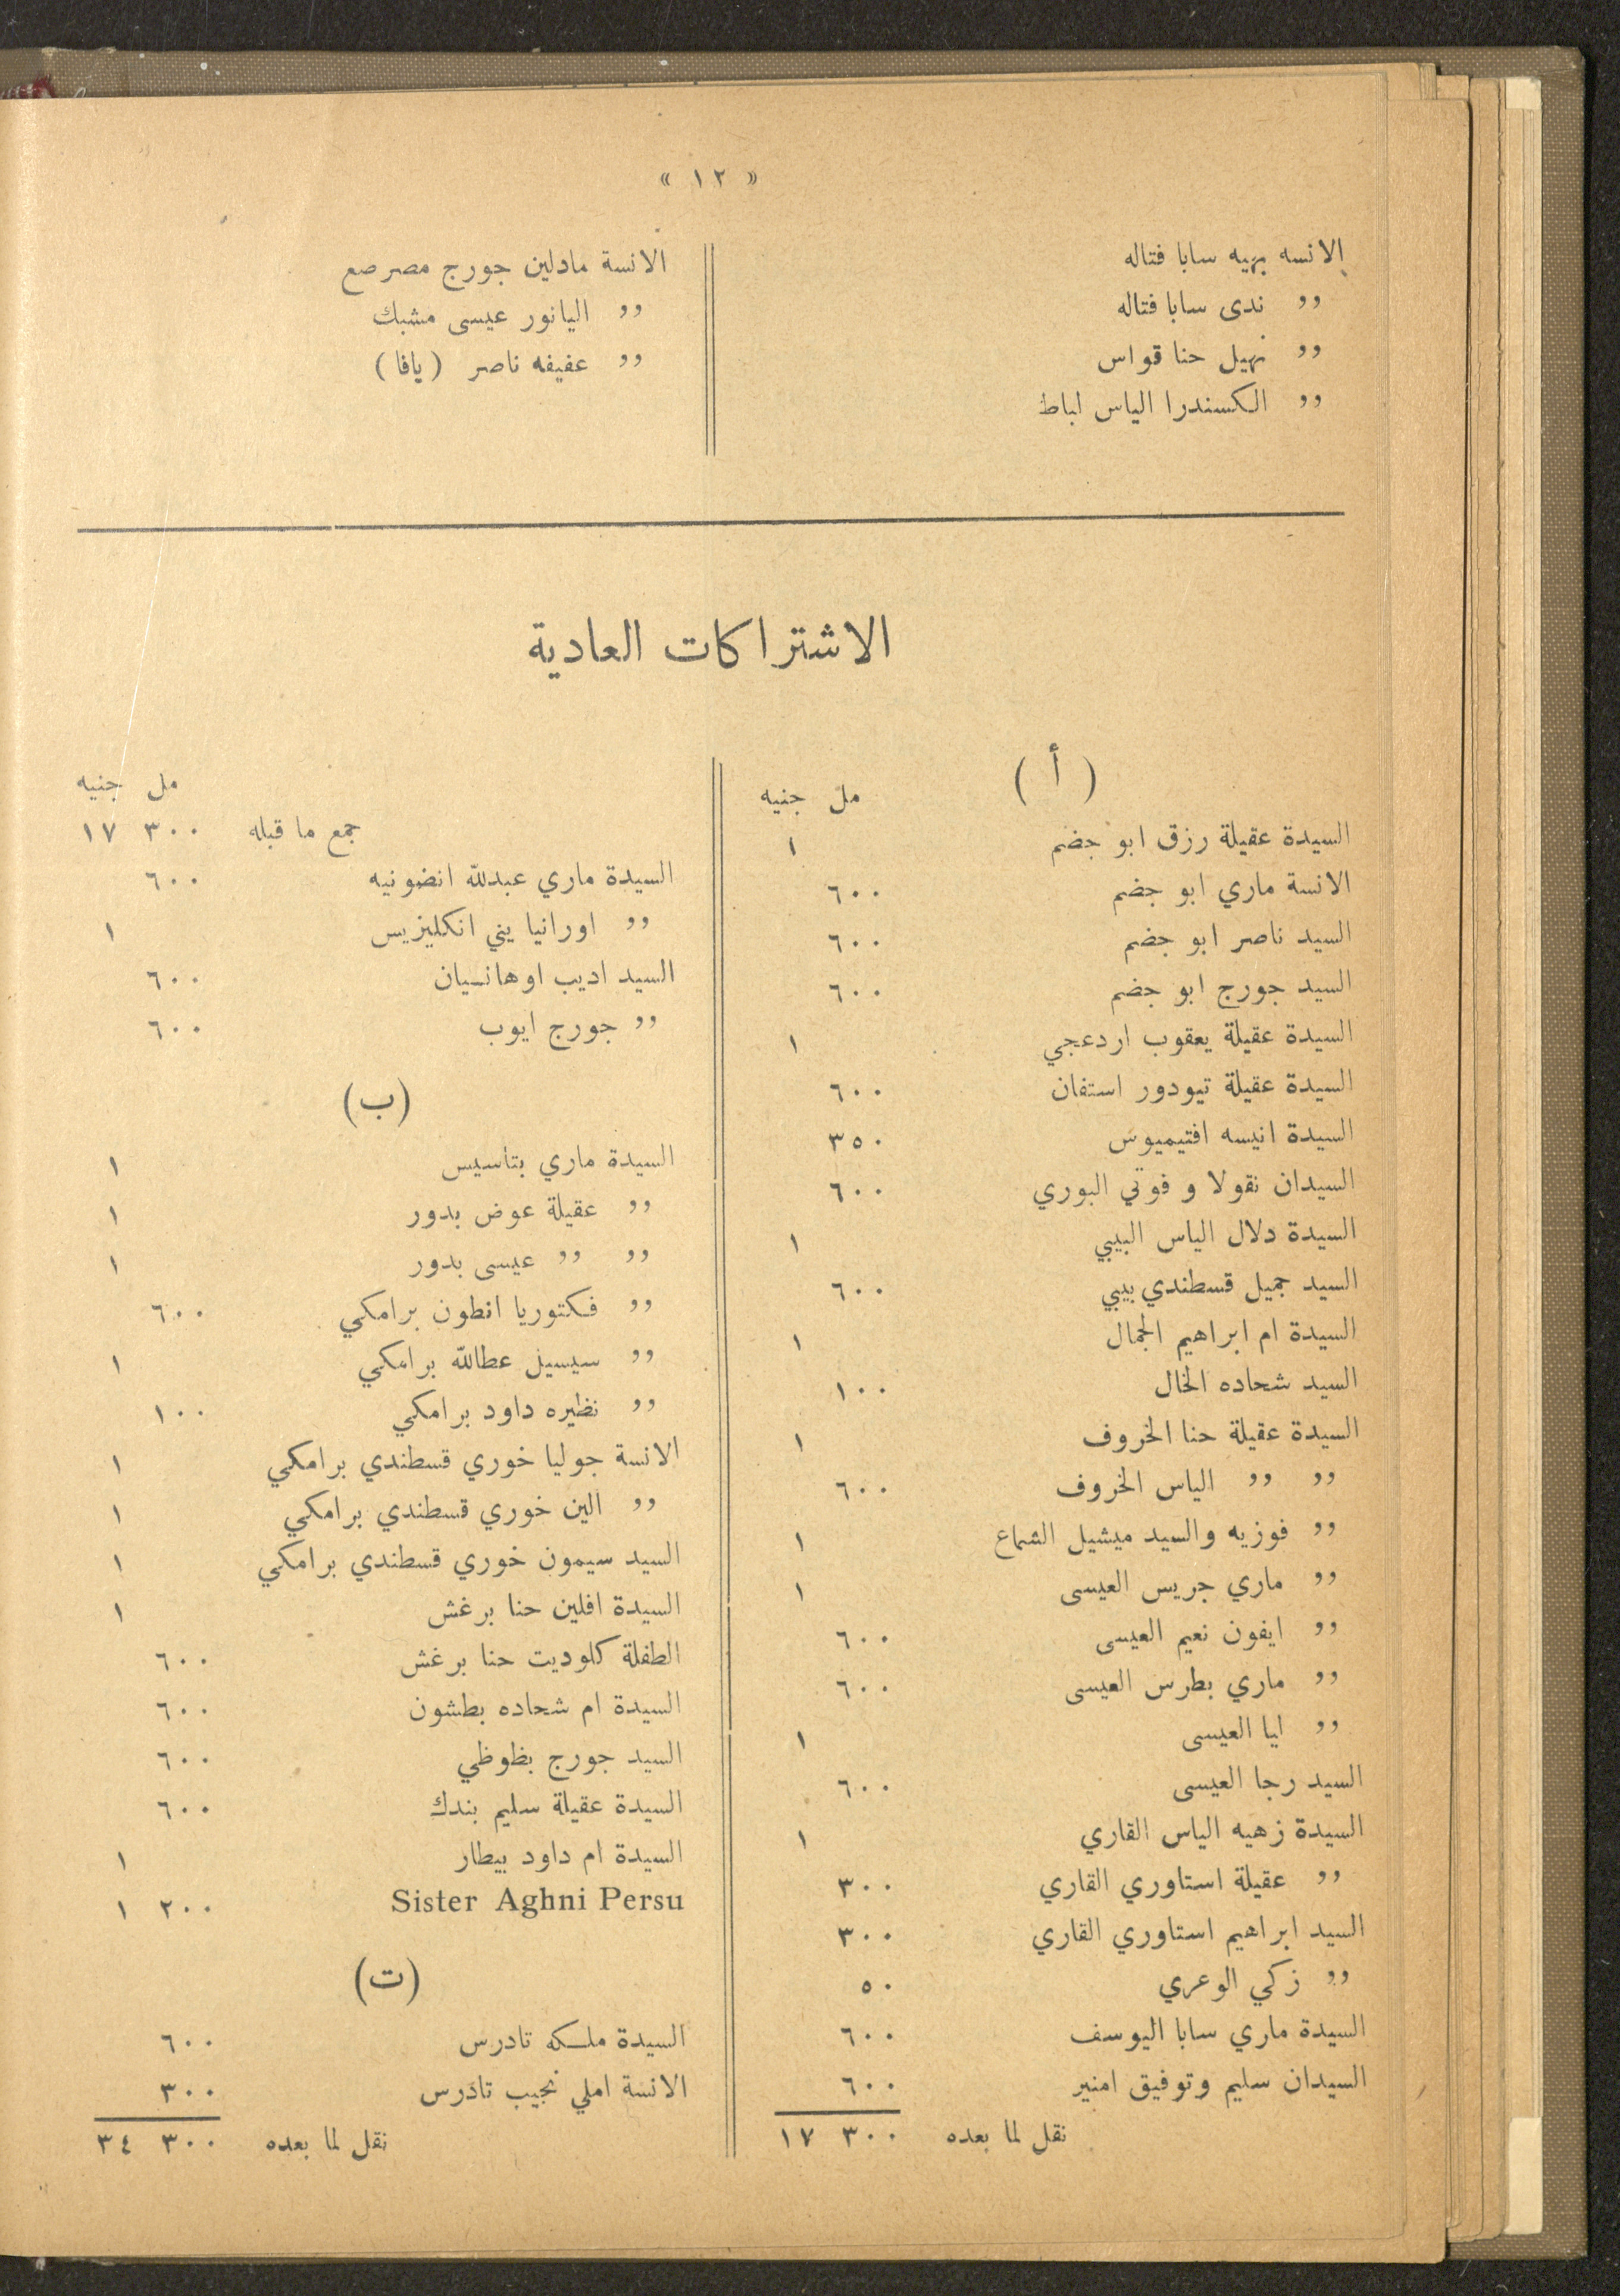 « ١٢ »
الانسه بهيه سابا فتاله
,, ندى سابا فتاله
,, نهيل حنا قواس
,, الكسندرا الياس لباط
الانسة مادلين جورج مصرصع
,, اليانور عيسى مشبك
,, عفيفه ناصر (يافا)
الاشتراكات العادية
( أ )
مل جنيه
السيدة عقيلة رزق ابو جضم ١
الانسة ماري ابو جضم ٦٠٠
السيد ناصر ابو جضم ٦٠٠
السيد جورج ابو جضم ٦٠٠
السيدة عقيلة يعقوب اردعجي ١
السيدة عقيلة تيودور استفان ٦٠٠
السيدة انيسه افتيميوس ٣٥٠
السيدان نقولا و فوتي البوري ٦٠٠
السيدة دلال الياس البيبي ١
السيد جميل قسطندي بيبي ٦٠٠
السيدة ام ابراهيم الجمال ١
السيد شحاده الخال ١٠٠
السيدة عقيلة حنا الخروف ١
,, ,, الياس الخروف ٦٠٠
,, فوزيه والسيد ميشيل الشماع ١
,, ماري جريس العيسى ١
,, ايفون نعيم العيسى ٦٠٠
,, ماري بطرس العيسى ٦٠٠
,, ايا العيسى ١
السيد رجا العيسى ٦٠٠
السيدة زهيه الياس القاري ١
,, عقيلة استاوري القاري ٣٠٠
السيد ابراهيم استاوري القاري ٣٠٠
,, زكي الوعري ٥٠
السيدة ماري سابا اليوسف ٦٠٠
السيدان سليم وتوفيق امنير ٦٠٠
نقل لما بعده ٣٠٠ ١٧
مل جنيه
جمع ما قبله ٣٠٠ ١٧
السيدة ماري عبدلله انضونيه ٦٠٠
,, اورانيا يني انكليزيس ١
السيد اديب اوهانسيان ٦٠٠
,, جورج ايوب ٦٠٠
(ب)
السيدة ماري بتاسيس ١
,, عقيلة عوض بدور ١
,, ,, عيسى بدور ١
,, فكتوريا انطون برامكي ٦٠٠
,, سيسيل عطالله برامكي ١
,, نظيره داود برامكي ١٠٠
الانسة جوليا خوري قسطندي برامكي ١
,, الين خوري قسطندي برامكي ١
السيد سيمون خوري قسطندي برامكي ١
السيدة افلين حنا برغش ١
الطفلة كلوديت حنا برغش ٦٠٠
السيدة ام شحاده بطشون ٦٠٠
السيد جورج بظوظي ٦٠٠
السيدة عقيلة سليم بندك ٦٠٠
السيدة ام داود بيطار ١
Sister Aghni Persu ٢٠٠ ١
(ت)
السيدة ملكه تادرس ٦٠٠
الانسة املي نجيب تادرس ٣٠٠
نقل لما بعده ٣٠٠ ٣٤